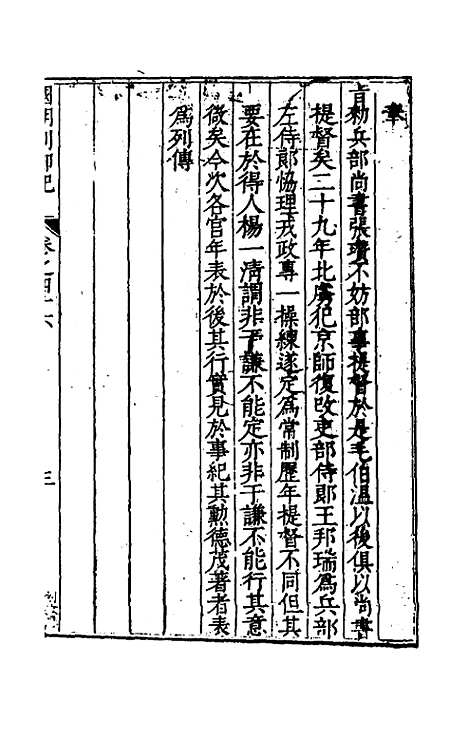 奉
旨勑兵部尚書張瓚不妨部事提督於是毛伯溫以後俱以尚書
提督矣二十九年北虜犯京師復改吏部侍郎王邦瑞爲兵部
左侍郎恊理戎政專一操練遂定爲常制歷年提督不同但其
要在於得人楊一淸謂非于謙不能定亦非于謙不能行其意
微矣今次各官年表於後其行實見於事紀其勳德茂著者表
爲列傳
國朝列卿記
卷之四十六
三